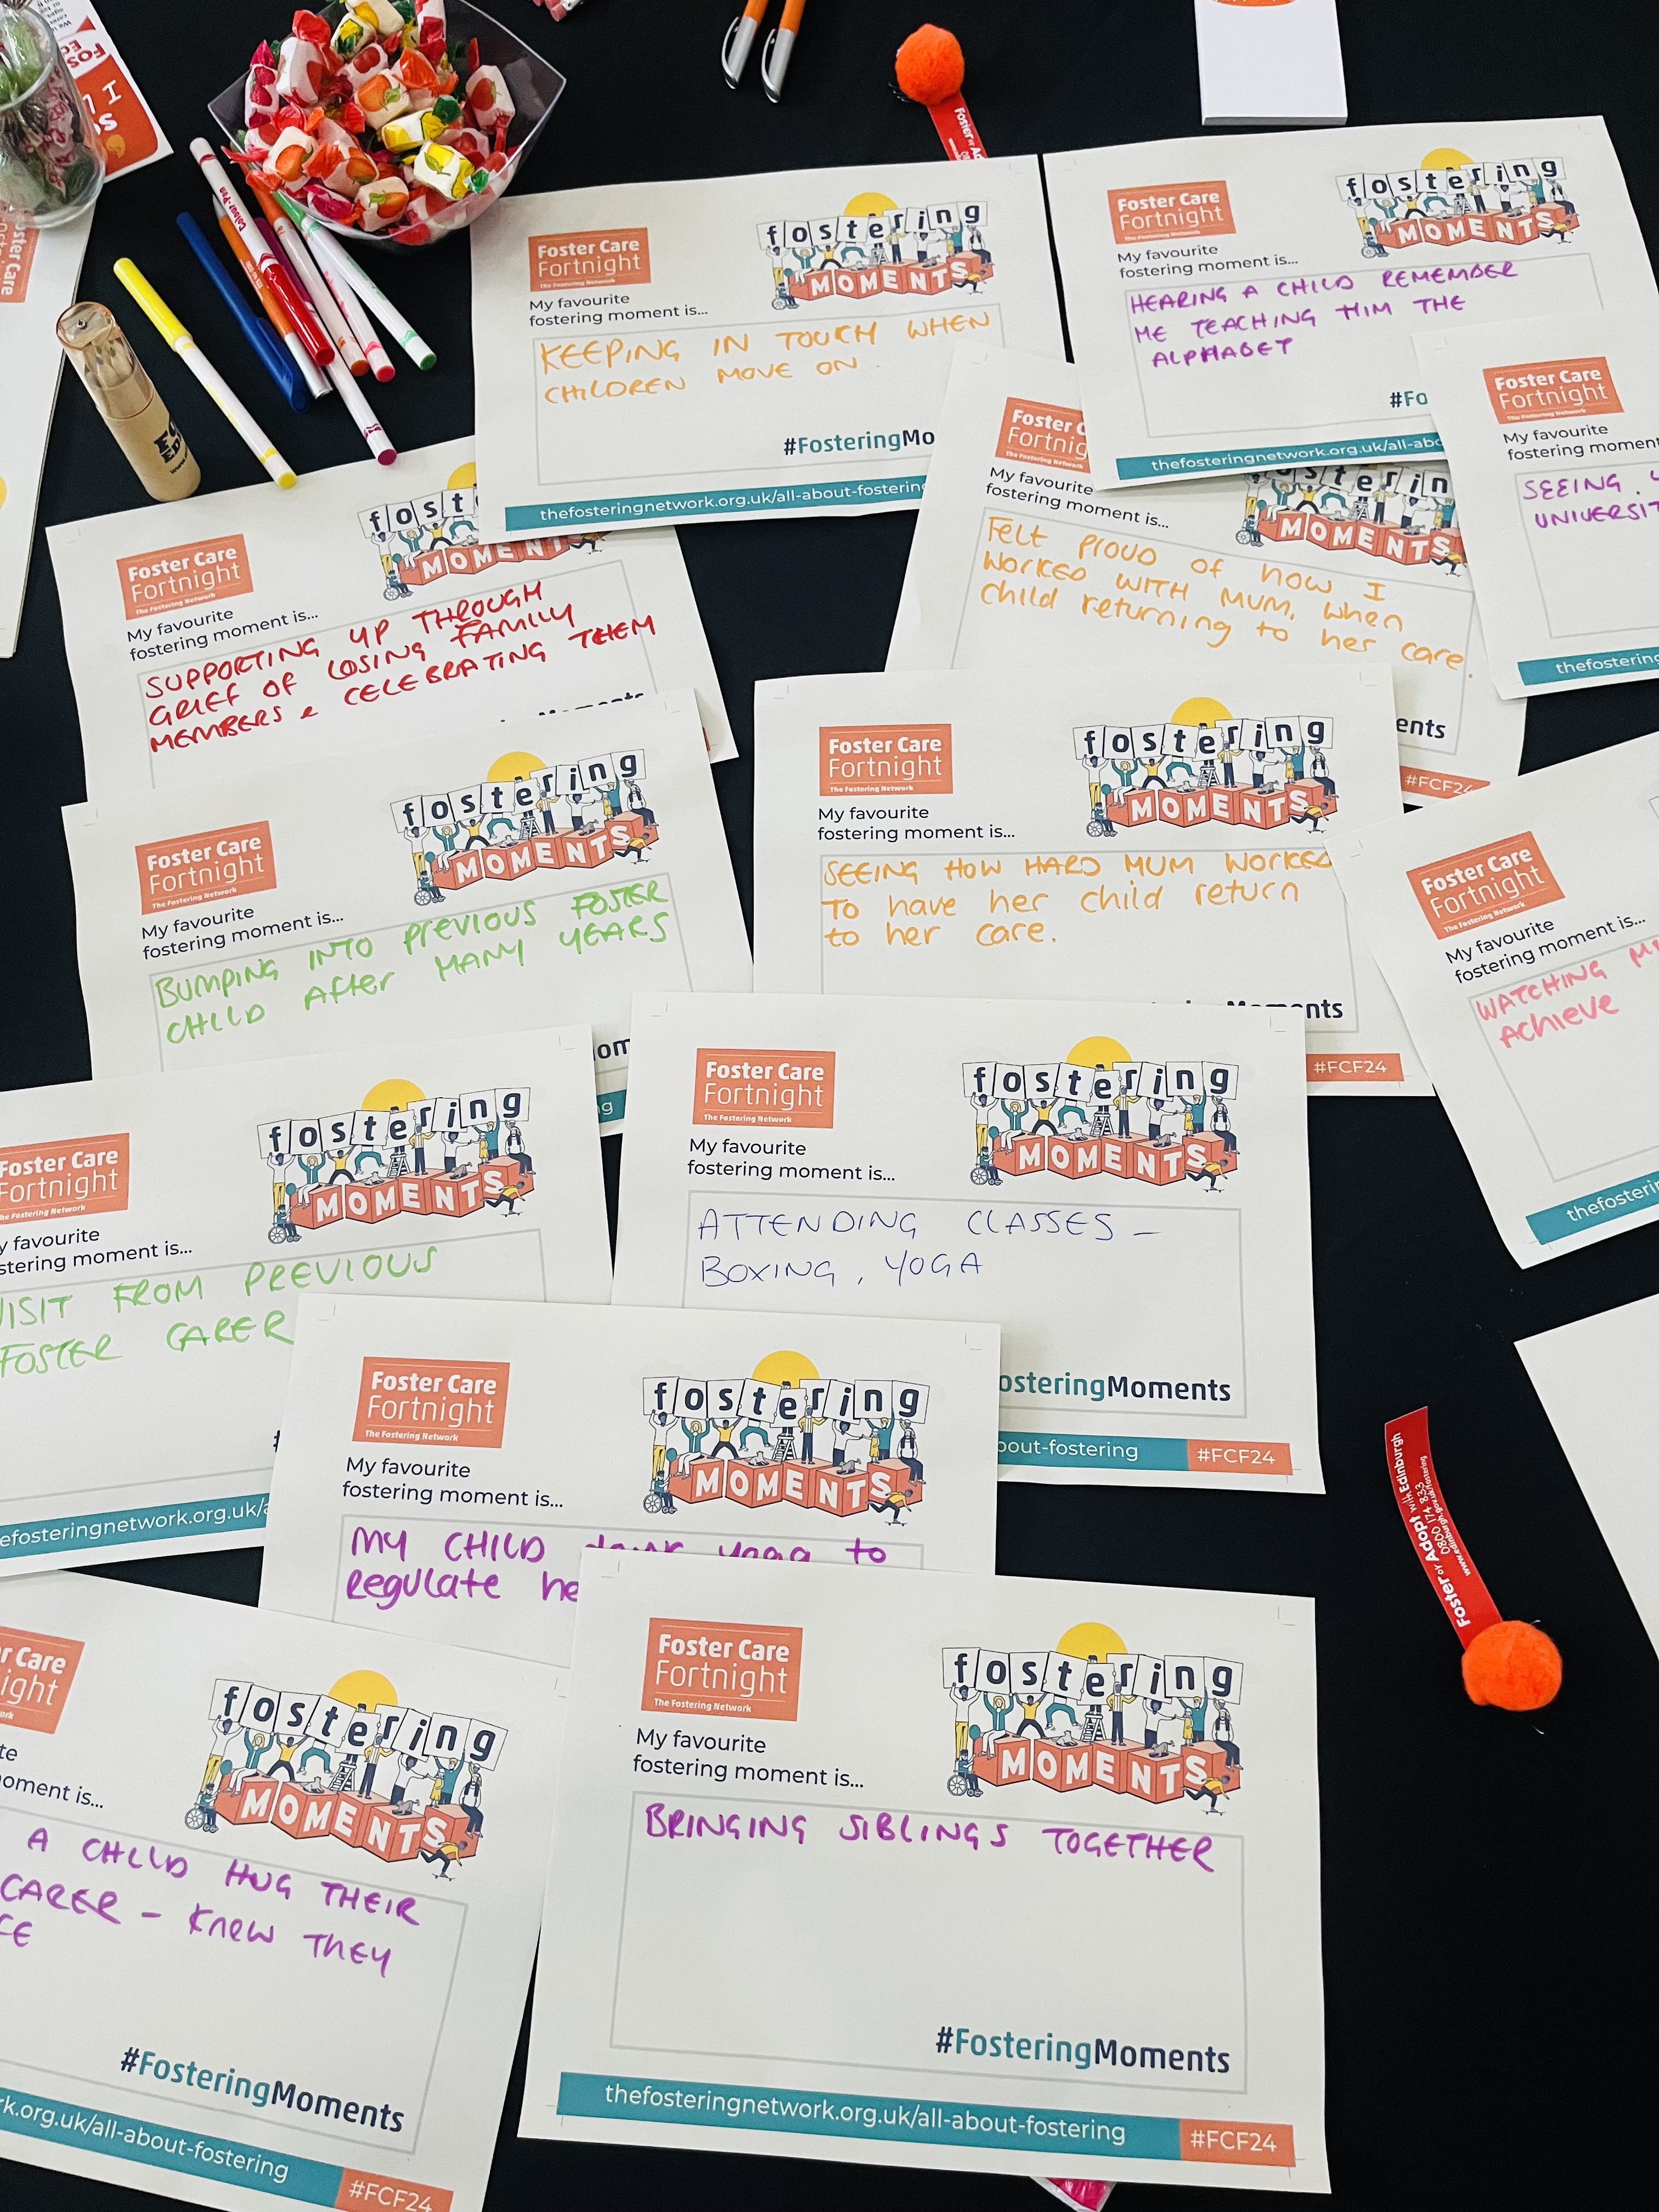 Foster Care
Fortnight
The Fostering Network
fostering
MOMENTS
My favourite
fostering moment is...
KEEPING IN TOUCH WHEN
CHILDREN MOVE ON.
#FosteringMo
thefosteringnetwork.org.uk/all-about-fostering
Foster Care
Fortnight
The Fostering Network
fostering
MOMENTS
My favourite
fostering moment is...
HEARING A CHILD REMEMBER
ME TEACHING HIM THE
ALPHABET
#Fo
thefosteringnetwork.org.uk/all-abo
Foster Care
Fortnight
The Fostering Network
My favourite
fostering moment
SEEING
thefostering
Foster C
Fortnig
My favourite
fostering moment is...
fosterin
MOMENTS
Felt PROUD of how I
WORKED WITH MUM, when
child returning to her care.
ents
#FCF24
Foster Care
Fortnight
The Fostering Network
fost
MOMENT
My favourite
fostering moment is...
SUPPORTING YP THROUGH
GRIEF OF LOSING FAMILY
MEMBERS & CELEBRATING THEM
Foster Care
Fortnight
The Fostering Network
fostering
MOMENTS
My favourite
fostering moment is...
BUMPING INTO PREVIOUS FOSTER
CHILD AFTER MANY YEARS
Foster Care
Fortnight
The Fostering Network
fostering
MOMENTS
My favourite
fostering moment is...
SEEING HOW HARD MUM WORKED
TO have her child return
to her care.
Moments
#FCF24
Foster Care
Fortnight
The Fostering Network
My favourite
fostering moment is...
WATCHING
Achieve
thefosterin
Foster Care
Fortnight
The Fostering Network
fostering
MOMENTS
y favourite
stering moment is...
VISIT FROM PREVIOUS
FOSTER CARER
efosteringnetwork.org.uk/a
Foster Care
Fortnight
The Fostering Network
fostering
MOMENTS
My favourite
fostering moment is...
ATTENDING CLASSES -
BOXING, YOGA
osteringMoments
bout-fostering
#FCF24
Foster Care
Fortnight
The Fostering Network
fostering
MOMENTS
My favourite
fostering moment is...
MY CHILD doing yoga to
Regulate he
r Care
ight
fostering
MOMENTS
oment is...
A CHILD HUG THEIR
CARER - Knew THEY
#FosteringMoments
rk.org.uk/all-about-fostering
#FCF24
Foster Care
Fortnight
The Fostering Network
fostering
MOMENTS
My favourite
fostering moment is...
BRINGING SIBLINGS TOGETHER
#FosteringMoments
thefosteringnetwork.org.uk/all-about-fostering
#FCF24
Foster or Adopt with Edinburgh
0800 174 833
www.edinburgh.gov.uk/fostering